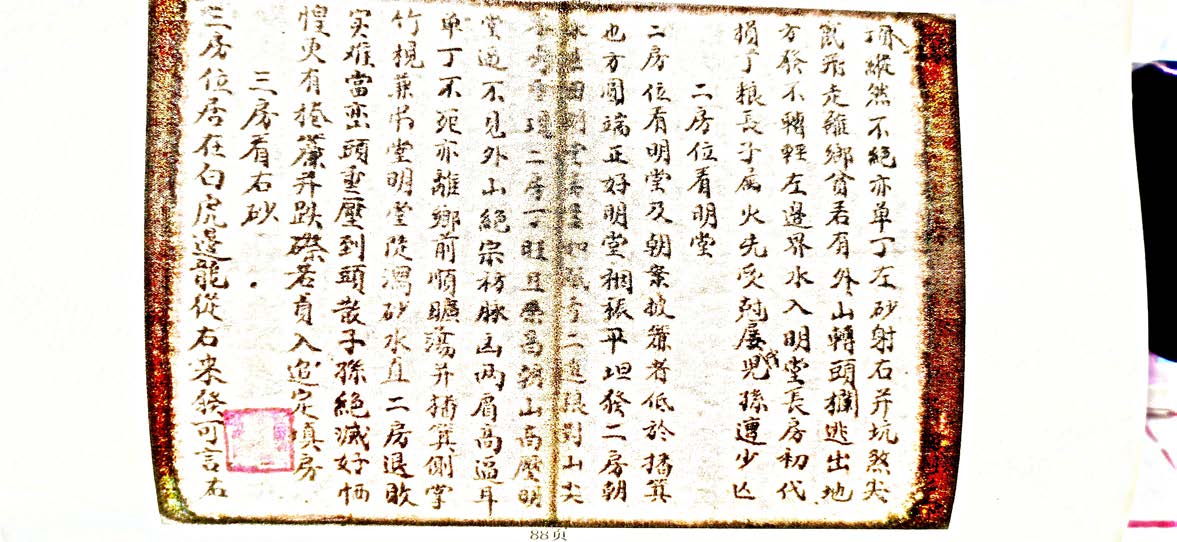 頂縱然不絕亦单丁左砂射右并坑煞尖
飛走離鄉貧若有外山轉頭攔逃出地
方發不轉輕左邊界水入明堂長房初代
損丁粮長子屬火先受尅屡児孫遭少亡
二房位看明堂
二房位看明堂及朝案披簷者低於播箕
也方圓端正好明堂裀褥平坦發二房朝
二 對山尖
二房丁旺且 朝山高壓明
堂逼不見外山絕宗枋脉 两眉高過耳
单丁不死亦離鄉前順曠蕩并播箕側掌
竹梘兼吊堂明堂陡瀉砂水直二房退敗
实难當峦頭重壓到頭散子孫絕滅好恓
惶更有捲簾并跌磜若有入 定填房
三房看右砂
三房位居在白虎邊龍從右来發可言右
88页